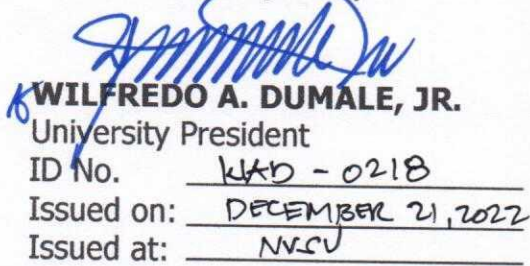 WILFREDO A. DUMALE, JR.
University President
ID No. WAD - 0218
Issued on: DECEMBER 21, 2022
Issued at: NVSU